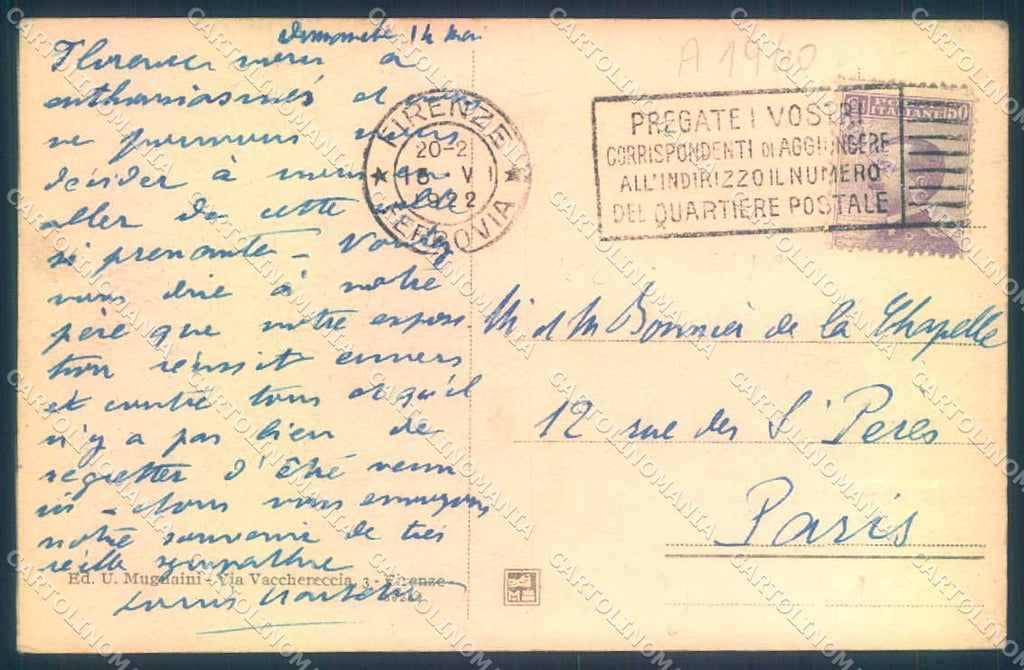 Dimanche 14 Mai
Florence nous a
enthousiasmés et
ne pouvons
décider à nous en
aller de cette ville
si prenante -
vous dire à notre
père que notre exposi-
tion réussit envers
et contre tous et qu'il
n'y a pas lieu de
regretter d'être venu
ici - nous vous envoyons
notre souvenir de très
réelle sympathie
Louis
A 1940
FIRENZE
20-2
15 V
1922
FERROVIA
PREGATE I VOSTRI
CORRISPONDENTI DI AGGIUNGERE
ALL'INDIRIZZO IL NUMERO
DEL QUARTIERE POSTALE
M. et M Bonnier de la Chapelle
12 rue des St Pères
Paris
Ed. U. Mugnaini - Via Vacchereccia, 3 - Firenze
CARTOLINOMANIA